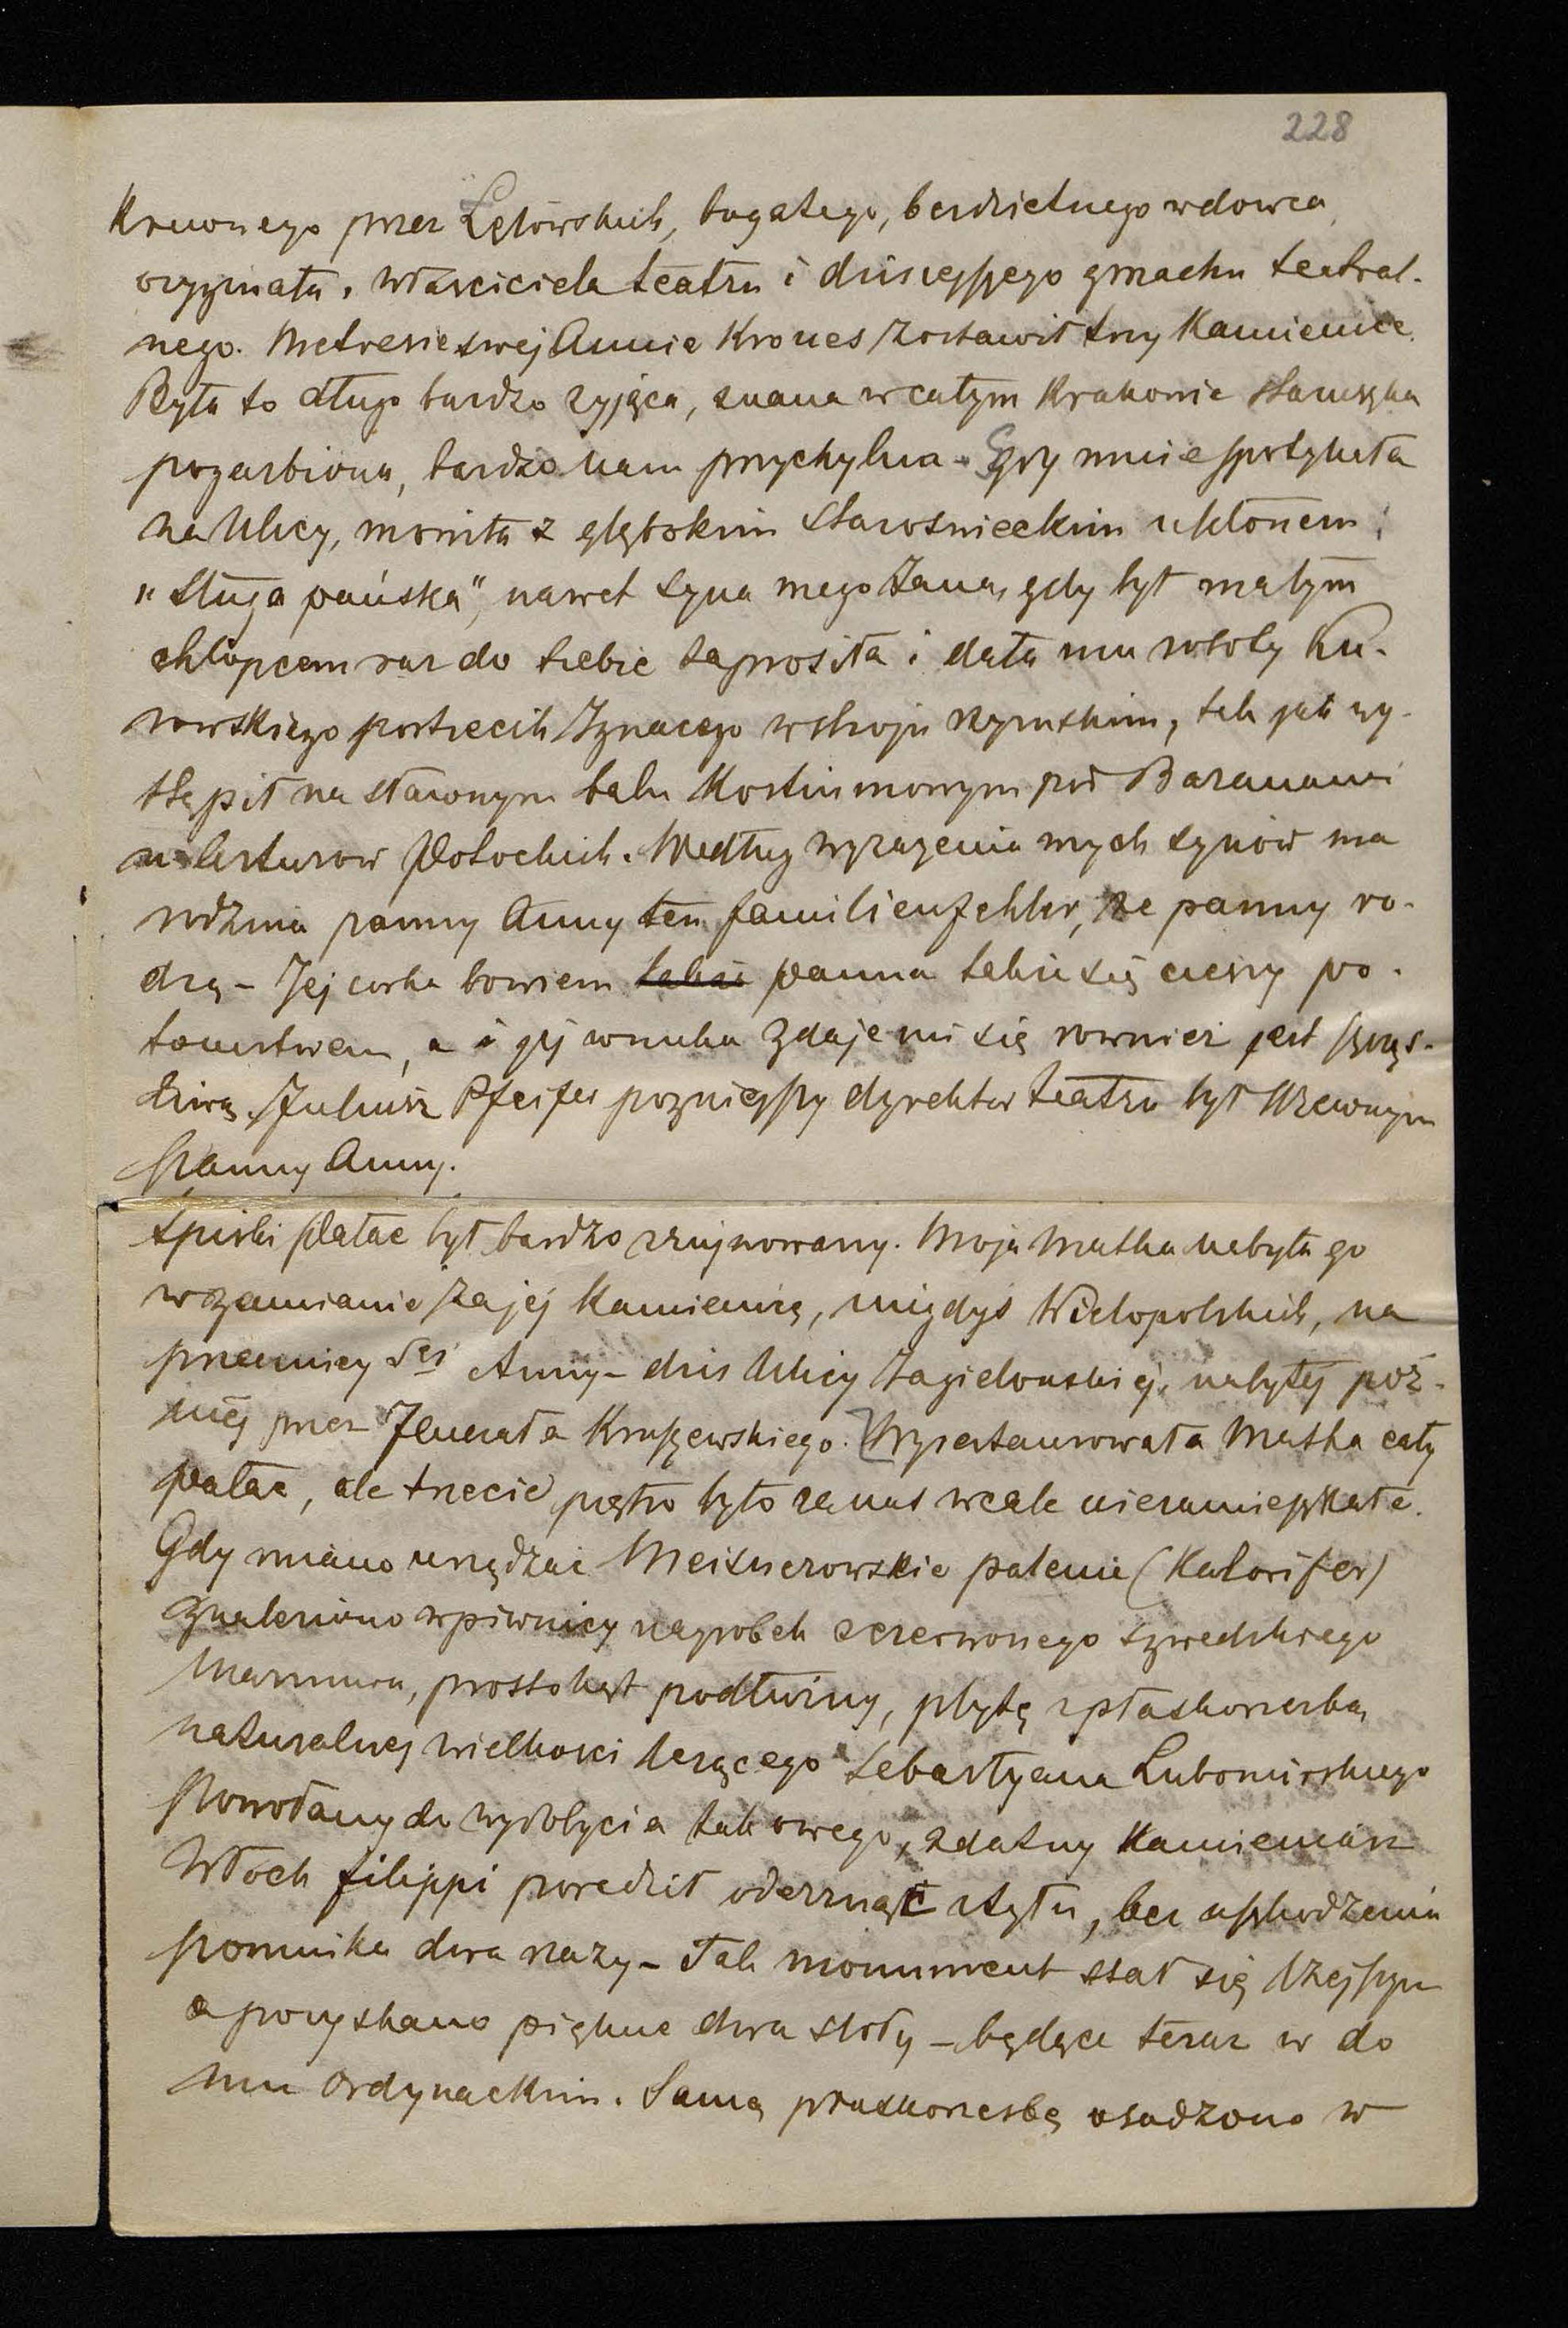 228
Krewnego przez Łętowskich, bogatego, bezdzietnego wdowca
oryginała, właściciela teatru i dzisiejszego gmachu teatral-
nego. Metresie swej Annie Krones zostawił trzy Kamienice.
Była to długo bardzo żyjąca, znana w całym Krakowie staruszka
pogarbiona, bardzo nam przychylna. Gdy mnie spotykała
na Ulicy, mowiła z głębokim staroświeckim ukłonem:
"Sługa pańska", nawet syna mego Jana, gdy był małym
chłopcem raz do siebie zaprosiła i dała mu roboty Ku-
rowskiego portrecik Ignacego w stroju rzymskim, tak jak wy-
stąpił na sławnym balu Kostiumowym pod Baranami
u Arturow Potockich. Według wyrażenia mych synów ma
rodzina panny Anny ten familienfehler, że panny ro-
dzą - Jej corka bowiem także panna także się cieszy po-
tomstwem, a i jej wnuka zdaje mi się rownież jest szczęs-
liwą. Juliusz Pfeifer pozniejszy dyrektor teatru był Krewnym
panny Anny.
Spiski Pałac był bardzo zrujnowany. Moja Matka nabyła go
w zamianie za jej Kamienicę, niegdyś Wielopolskich, na
przecznicy Sej Anny - dzis Ulicy Jagielonskiej, nabytej póź-
niej przez Jenerała Kruszewskiego. Wyrestaurowała Matka cały
pałac, ale trzecie piętro było za nas wcale niezamieszkałe.
Gdy miano urządzać Meisnerowskie palenie (Kalorifer)
znaleziono w piwnicy nagrobek czerwonego szwedzkiego
Marmuru, prostokąt podłużny, płytę z płaskorzezbą
naturalnej wielkosci leżącego Sebastyana Lubomirskiego
Powołany do wydobycia takowego, zdatny Kamieniarz
Włoch Filippi poradził oderznąć z tyłu, bez uszkodzenia
pomnika dwa razy - Tak monument stał się lżejszym
a pozyskano piękne dwa stoły - będące teraz w do
mu Ordynackim. Samą płaskorzezbę osadzono w